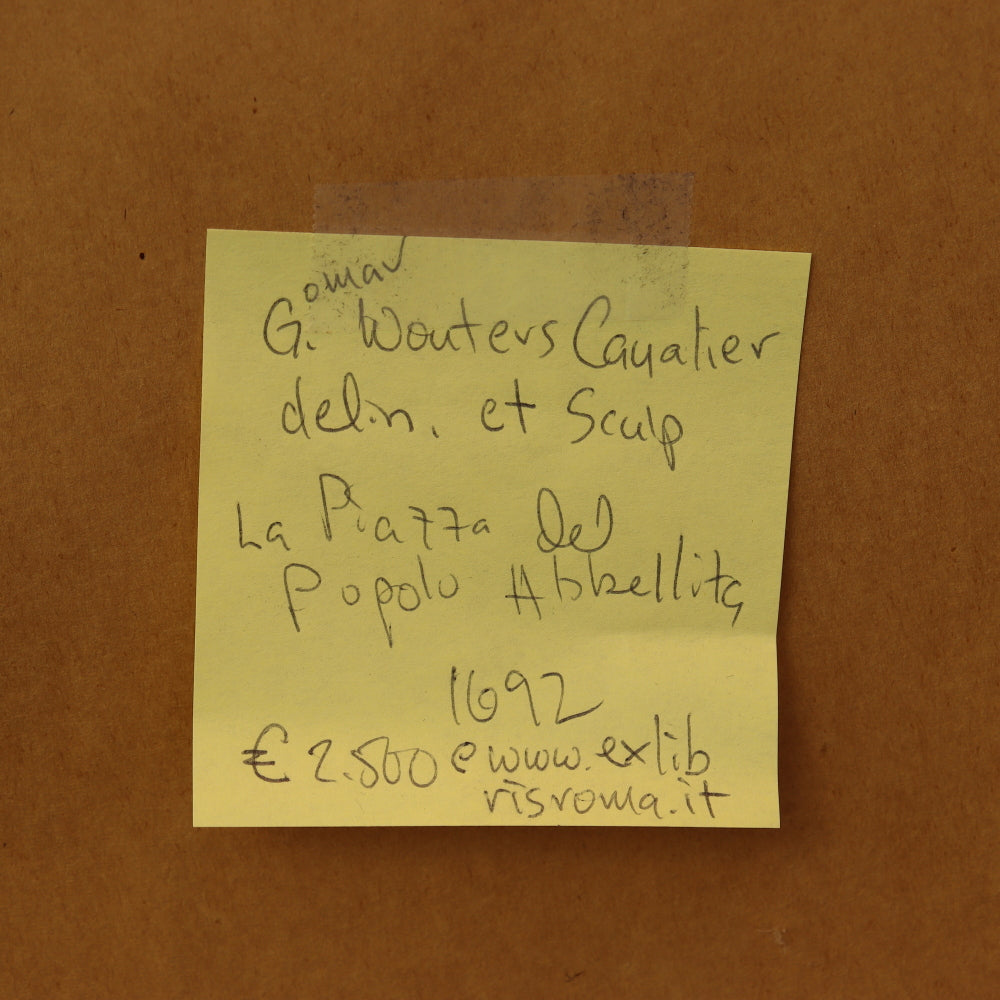 omar
G. Wouters Cavalier
delin. et Sculp
La Piazza del
Popolo Abbellita
1692
€ 2.500 @ www.exlib
risroma.it